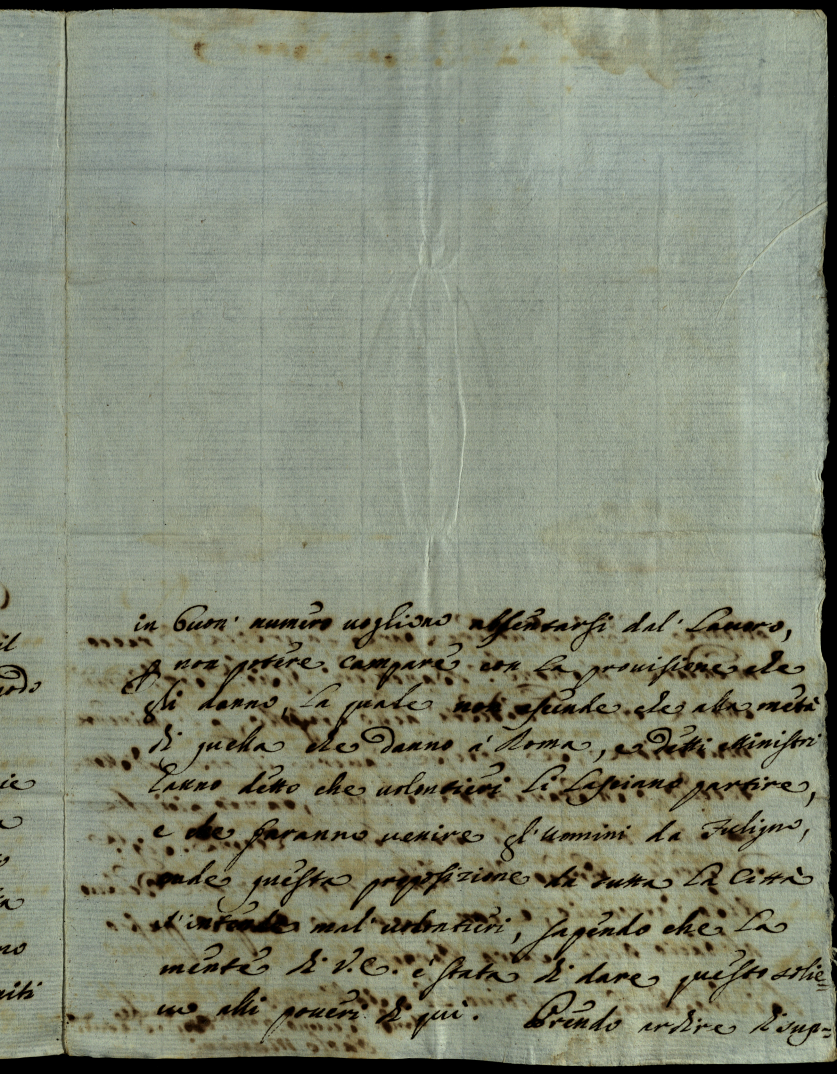 il
in buon' numero vogliono assentarsi dal' Lavoro,
p non potere campare con La provisione che
gli danno, La quale non asciende che alla metà
di quella che Danno à Roma, e Detti Ministri
hanno detto che volontieri Li Lasciano partire,
e che faranno venire gl'uomini da Fuligno,
onde questa proposizione da tutta La Città
s'intende mal' volontieri, sapendo che La
mente di V.E. è stata di dare questo solie=
vo alli poveri di qui. Prendo ardire di sup=